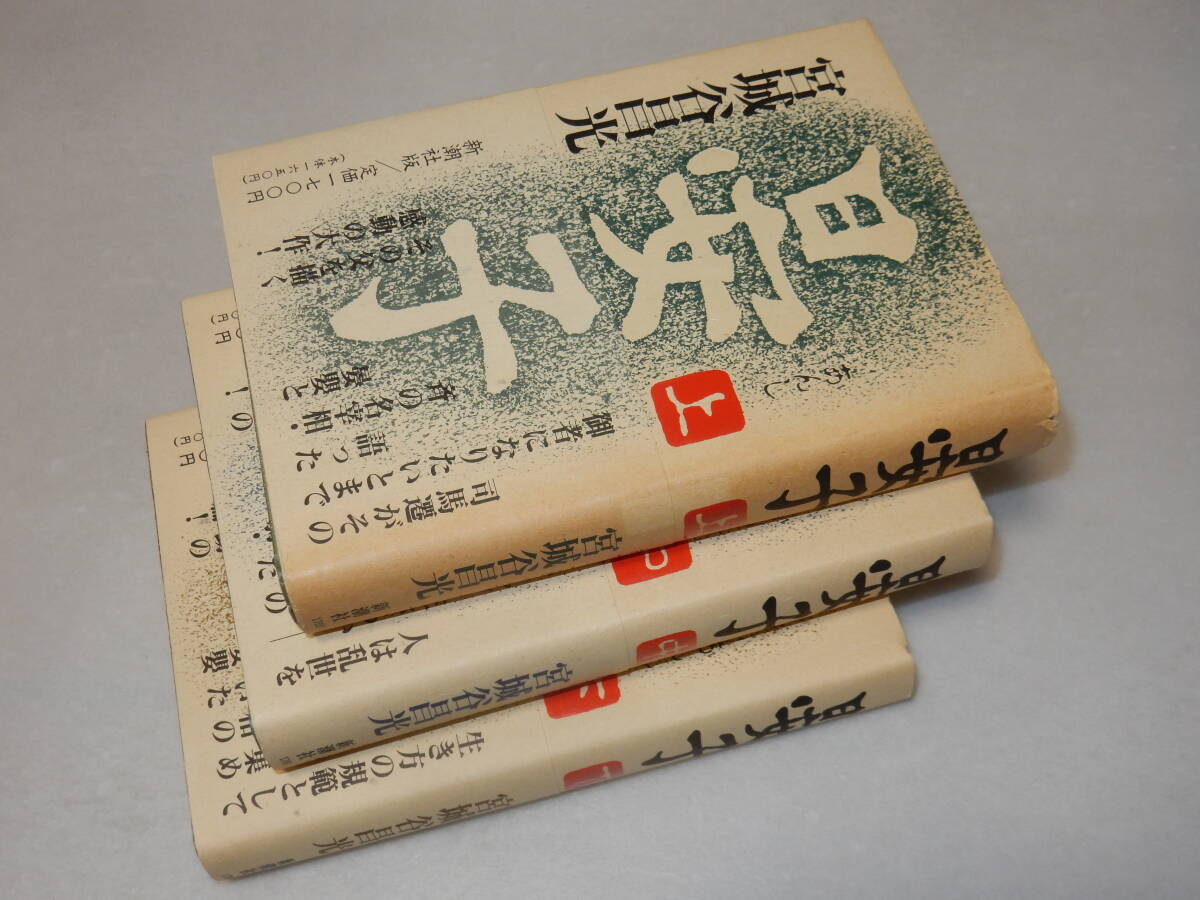 宮城谷昌光
晏子
あんし
上
司馬遷がその
御者になりたいとまで
語った
斉の名宰相・
晏嬰と
その父を描く
感動の大作!
新潮社版/定価一七〇〇円
(本体一六五〇円)
晏子
上
宮城谷昌光
新潮社
中
人は乱世を
晏子
中
宮城谷昌光
新潮社
下
生き方の規範として
晏子
下
宮城谷昌光